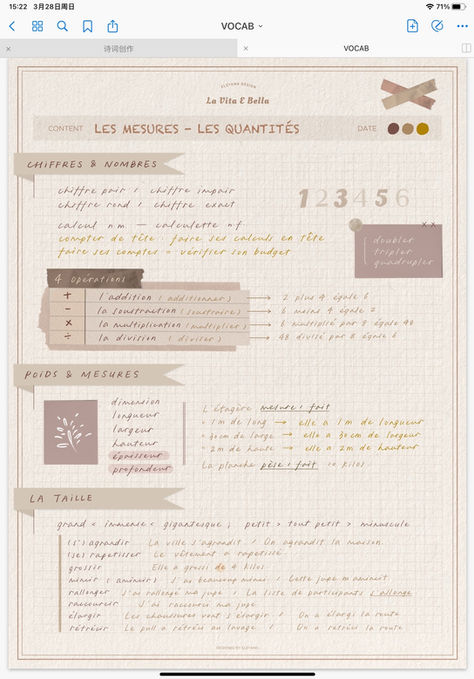 15:22 3月28日周日
71%
VOCAB
诗词创作
VOCAB
ELEYANE DESIGN
La Vita E Bella
CONTENT LES MESURES - LES QUANTITÉS DATE
CHIFFRES & NOMBRES
chiffre pair / chiffre impair
chiffre rond / chiffre exact
123456
calcul n.m — calculette n.f
compter de tête : faire ses calculs en tête
faire ses comptes = vérifier son budget
doubler
tripler
quadrupler
4 opérations
+ l'addition (additionner) → 2 plus 4 égale 6
- la soustraction (soustraire) → 6 moins 4 égale 2
× la multiplication (multiplier) → 6 multiplié par 8 égale 48
÷ la division (diviser) → 48 divisé par 8 égale 6
POIDS & MESURES
dimension
longueur
largeur
hauteur
épaisseur
profondeur
L'étagère mesure / fait
1m de long → elle a 1m de longueur
30cm de large → elle a 30cm de largeur
2m de haute → elle a 2m de hauteur
La planche pèse / fait kilos
LA TAILLE
grand < immense < gigantesque ; petit > tout petit > minuscule
(s')agrandir La ville s'agrandit / On agrandit la maison.
(se) rapetisser Le vêtement a rapetissé.
grossir Elle a grossi de 4 kilos
mincir (amincir) J'ai beaucoup minci / Cette jupe m'amincit
rallonger J'ai rallongé ma jupe / La liste de participants s'allonge
raccourcir J'ai raccourci ma jupe
élargir Les chaussures vont s'élargir / On a élargi la route
rétrécir Le pull a rétréci au lavage / On a rétréci la route